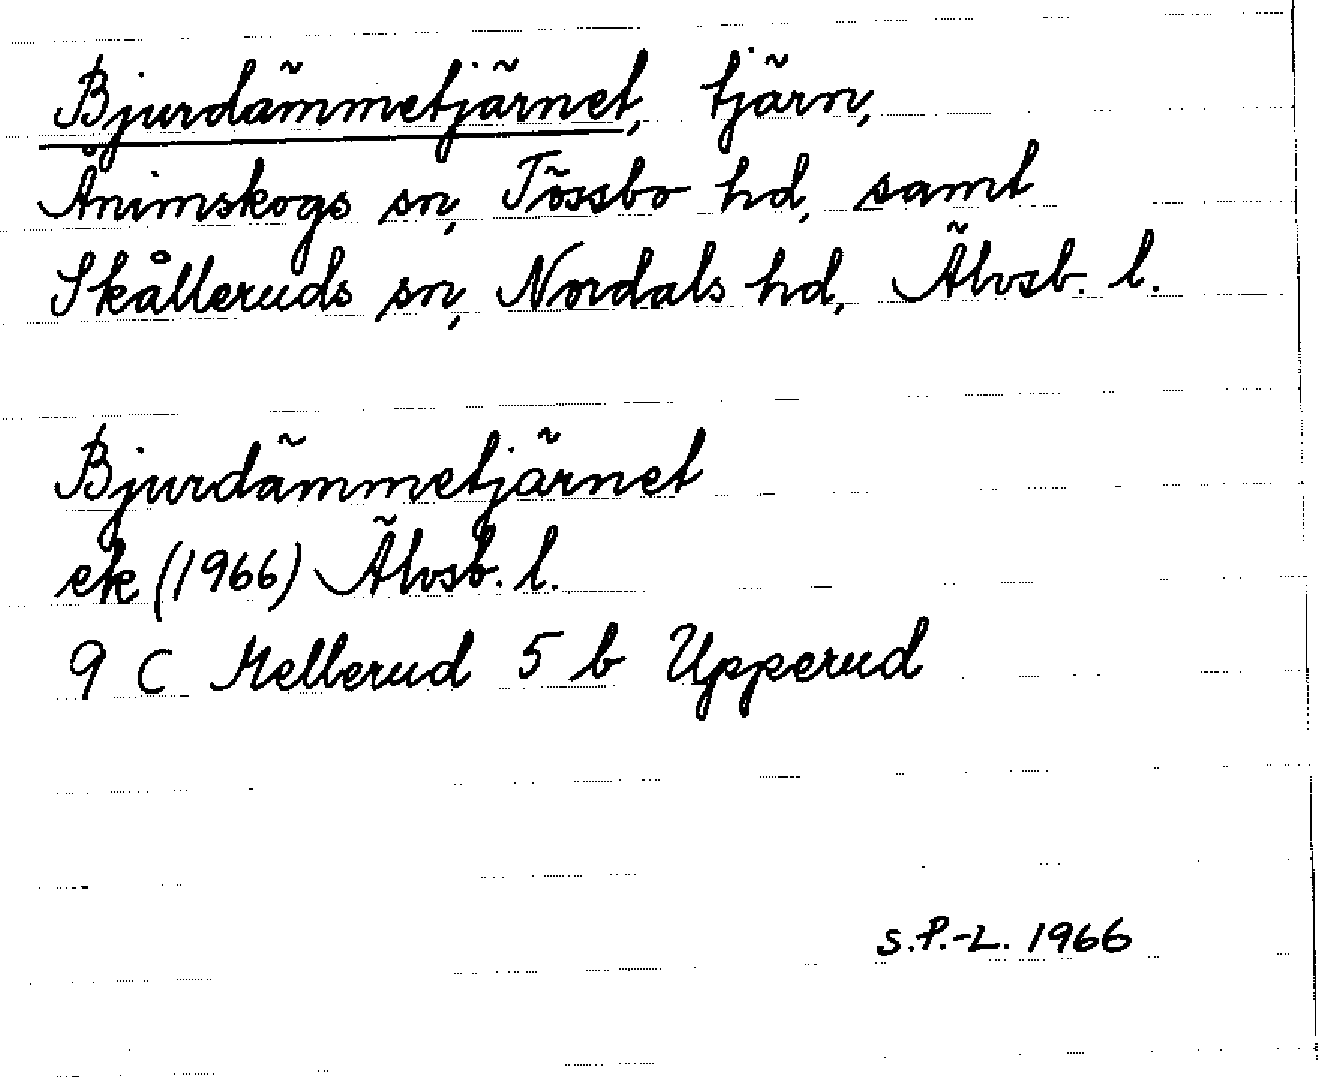 Bjurdämmetjärnet, tjärn,
Ånimskogs sn, Tössbo hd, samt
Skålleruds sn, Nordals hd, Älvsb. l.
Bjurdämmetjärnet
ek (1966) Älvsb. l.
9 C Mellerud 5 b Upperud
S.P.-L. 1966